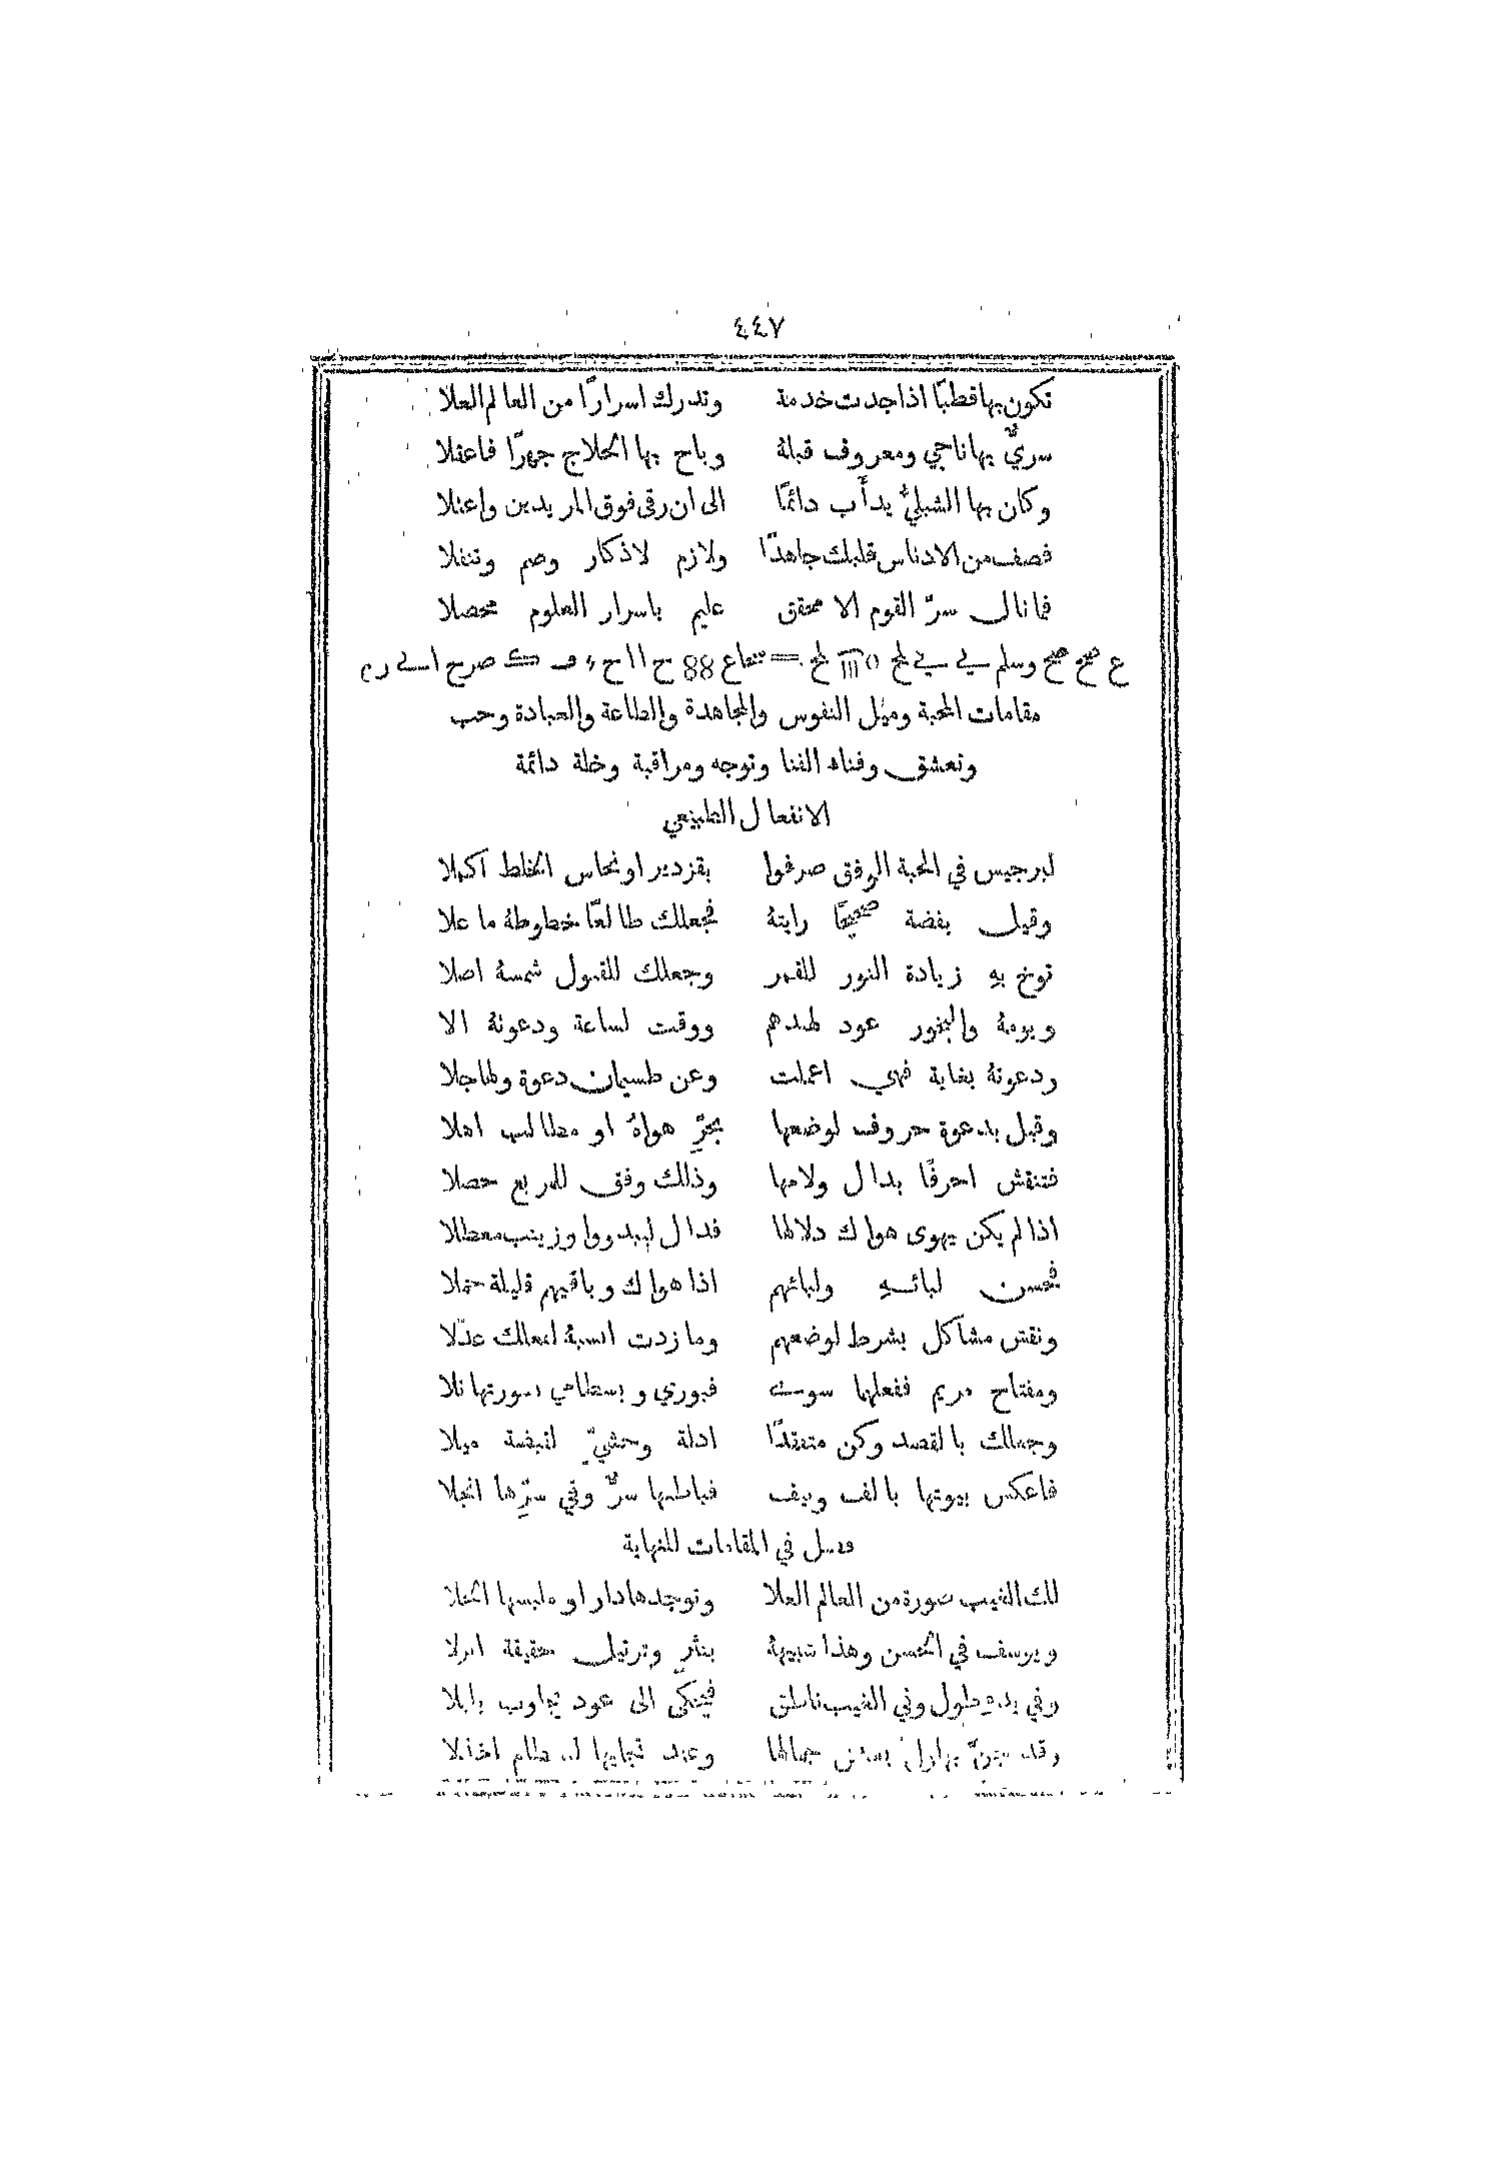 ٤٤٧
تكون بها قطبًا اذا جدت خدمة وتدرك اسرارًا من العالم العلا
سريٌّ بها ناجي ومعروف قبلهُ وباح بها الحلاج جهرًا فاعقلا
وكان بها الشبليُّ يدأب دائمًا الى ان رقى فوق المريدين واعتلا
فصف من الادناس قلبك جاهدًا ولازم لاذكار وصم وتنفلا
فما نال سرّ القوم الا محقق عليم باسرار العلوم محصلا
ع صح صح وسلم
مقامات المحبة وميل النفوس والمجاهدة والطاعة والعبادة وحب
وتعشق وفناه الفنا وتوجه ومراقبة وخلة دائمة
الانفعال الطبيعي
لبرجيس في المحبة الوفق صرفوا بقزدير او نحاس الخلط اكملا
وقيل بفضة صحيحًا رايتهُ فجعلك طالعًا خطوطهُ ما علا
توخ بهِ زيادة النور للقمر وجعلك للقبول شمسهُ اصلا
ويومهُ والبخور عود لهندهم ووقت لساعة ودعوتهُ الا
ودعوتهُ بغاية فهي اعملت وعن طسيمان دعوة ولها جلا
وقيل بدعوة حروف لوضعها بحرّ هواءُ او مطالب اهلا
فتنقش احرفًا بدال ولامها وذلك وفق للمربع حصلا
اذا لم يكن يهوى هواك دلالها فدال ليبدووا وزينب معطلا
فحسن لبائهِ ولبائهم اذا هواك وباقيهم قليلة حملا
ونقش مشاكل بشرط لوضعهم وما زدت انسبهُ لفعلك عدّلا
ومفتاح مريم ففعلها سوى فبوري وبسطامي سورتها تلا
وجعلك بالقصد وكن متفقدًا ادلة وحشيّ لقبضة ميلا
فاعكس بيوتها بالف ونيف فباطنها سرٌّ وفي سرّها انجلا
فصل في المقامات للنهاية
لك الغيب صورة من العالم العلا وتوجدها دار او ملبسها الحلا
ويوسف في الحسن وهذا شبيههُ بنثر وترتيل حقيقة انزلا
وفي يده طول وفي الغيب ناطق فيحكي الى عود يجاوب بلبلا
وقد جنّ بهلول بعشق جمالها وعند تجليها لبسطام اخذلا